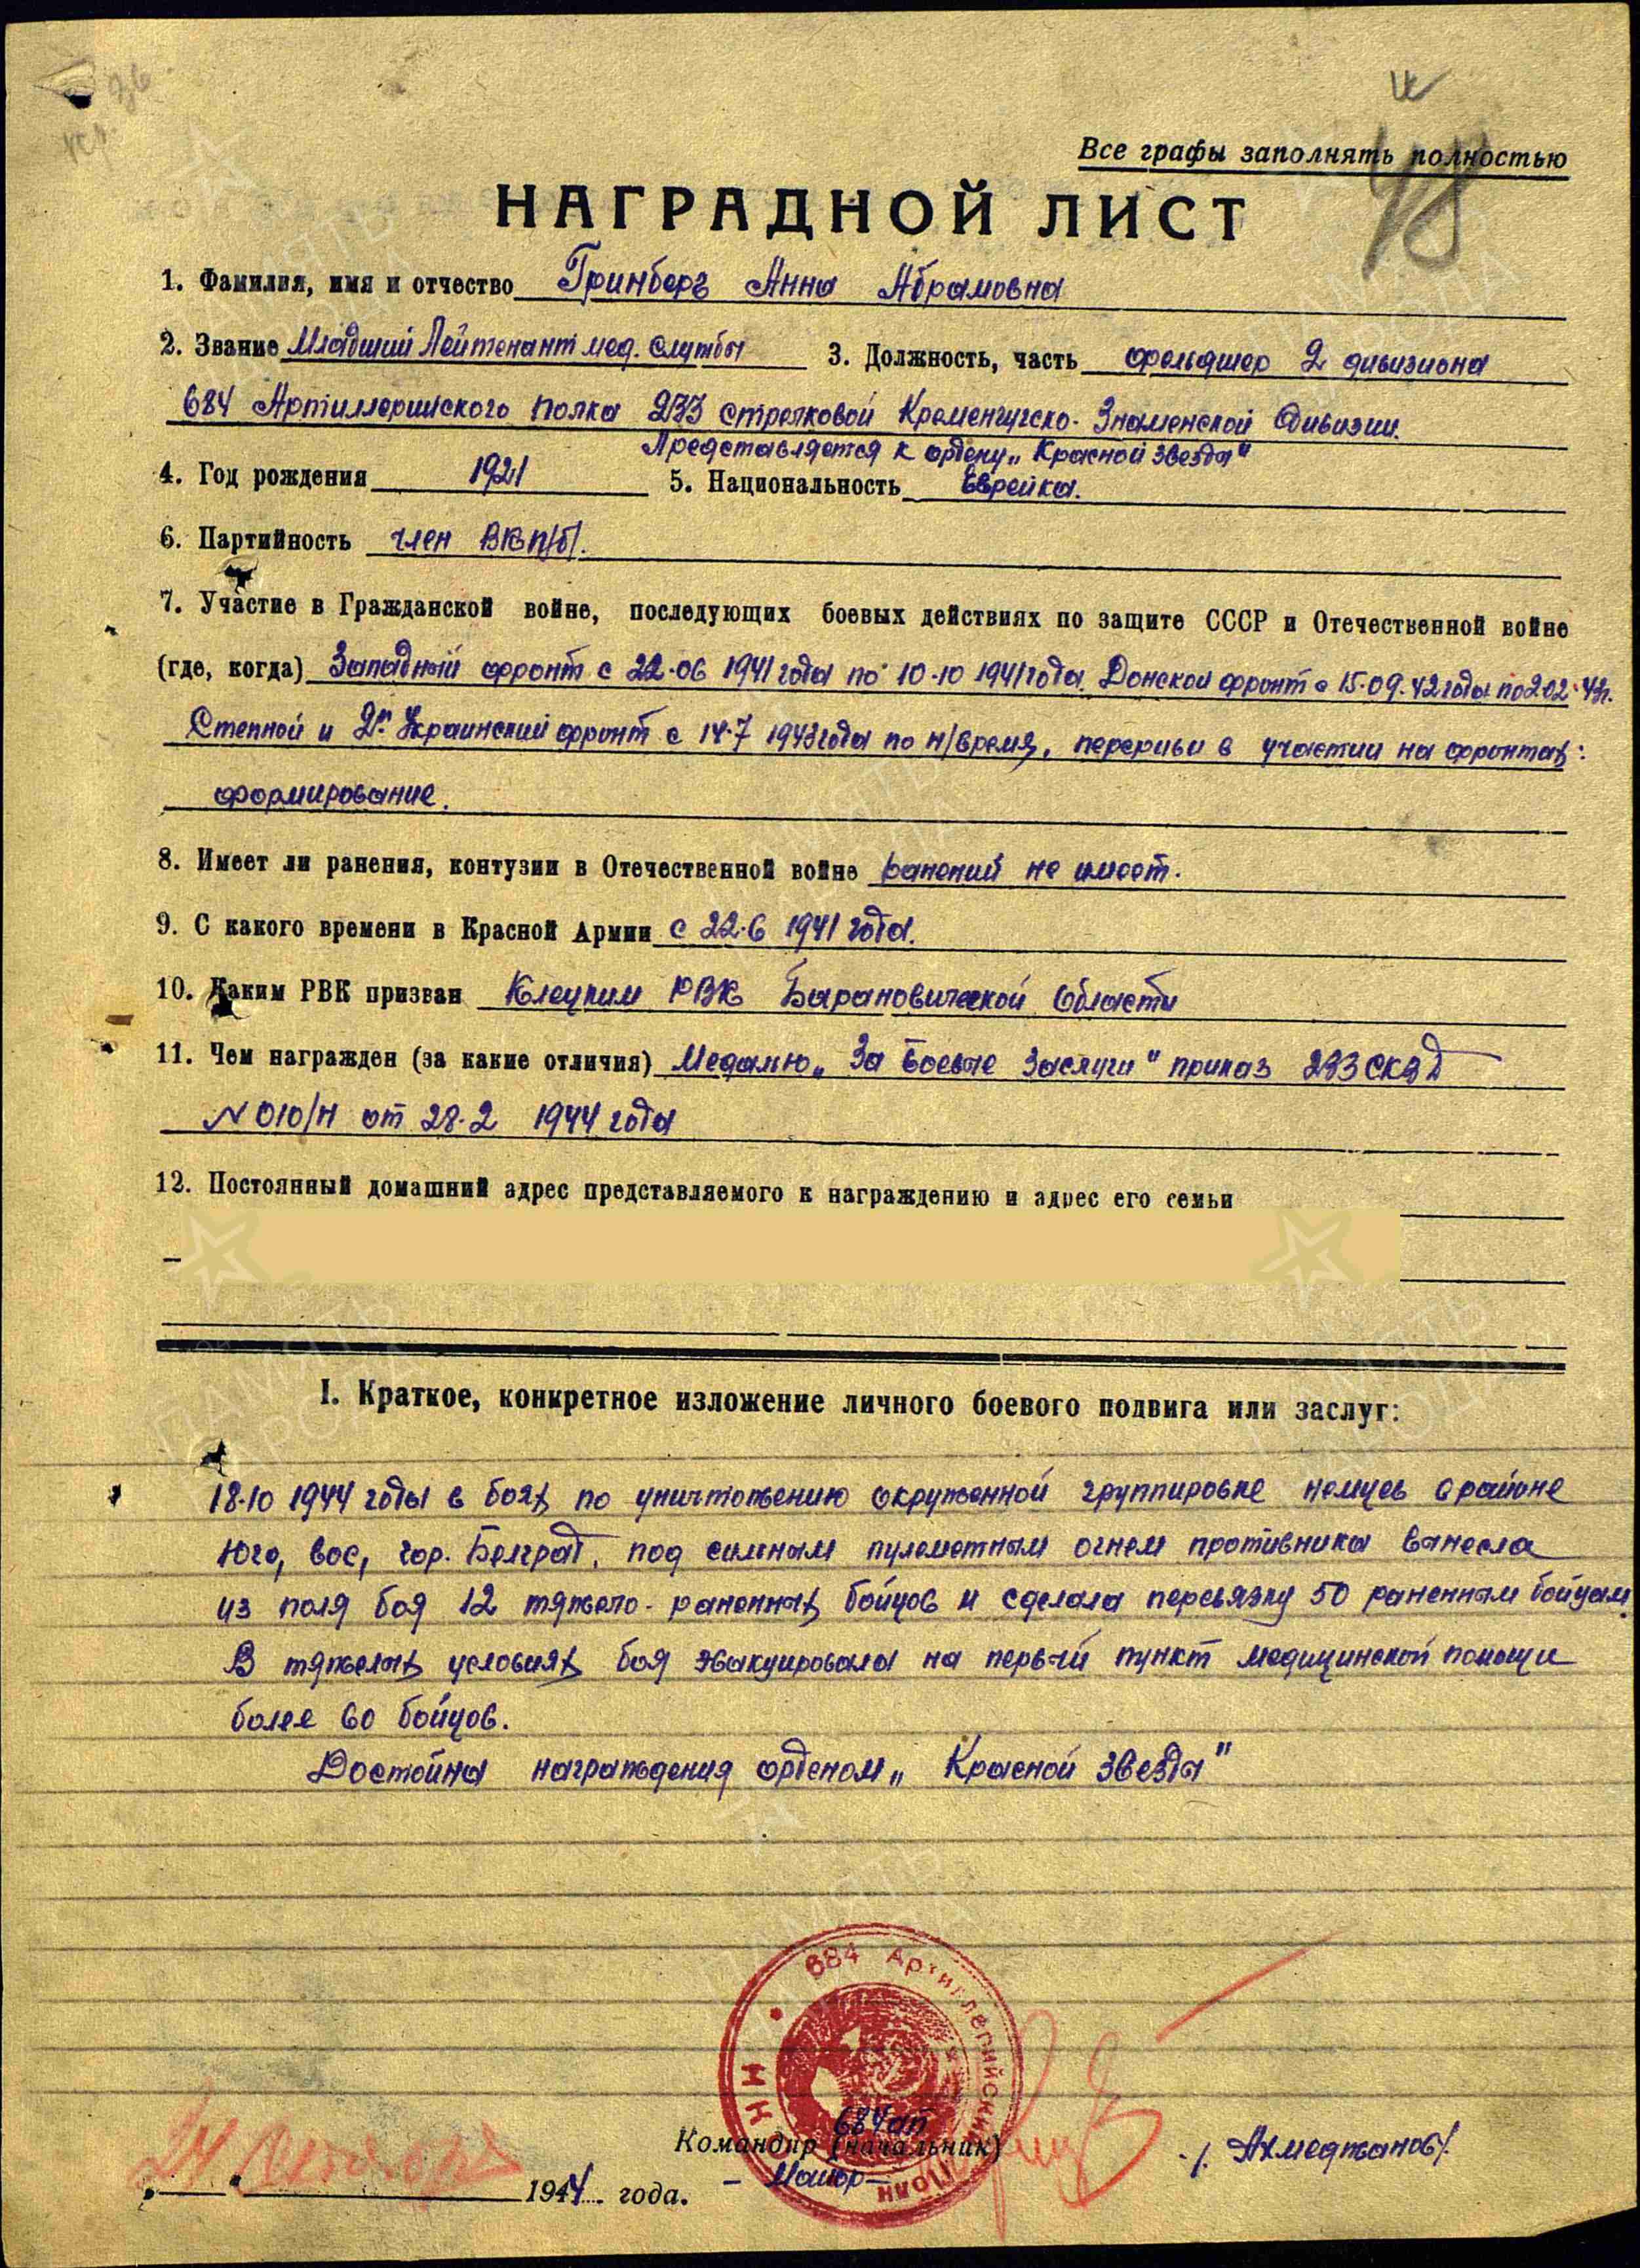 Все графы заполнять полностью
НАГРАДНОЙ ЛИСТ
1. Фамилия, имя и отчество Гринберг Анна Абрамовна
2. Звание Младший Лейтенант мед. службы 3. Должность, часть фельдшер 2 дивизиона
684 Артиллерийского полка 233 стрелковой Кременчугско-Знаменской Дивизии.
Представляется к ордену „Красной звезда"
4. Год рождения 1921 5. Национальность Еврейка.
6. Партийность член ВКП/б/.
7. Участие в Гражданской войне, последующих боевых действиях по защите СССР и Отечественной войне
(где, когда) Западный фронт с 22.06 1941 года по 10.10 1941 года, Донской фронт с 15.09.42 года по 2.02.43г.
Степной и 2й Украинский фронт с 14.7 1943 года по н/время, перерывы в участии на фронтах:
формирование.
8. Имеет ли ранения, контузии в Отечественной войне ранений не имеет.
9. С какого времени в Красной Армии с 22.6 1941 года.
10. Каким РВК призван Клецким РВК Барановической Области
11. Чем награжден (за какие отличия) Медалью „За Боевые Заслуги" приказ 233 СКЗД
N 010/Н от 28.2 1944 года
12. Постоянный домашний адрес представляемого к награждению и адрес его семьи
I. Краткое, конкретное изложение личного боевого подвига или заслуг:
18.10 1944 годы в боях по уничтожению окруженной группировке немцев в районе
юго, вос, гор. Белград, под сильным пулеметным огнем противника ванесла
из поля боя 12 тяжело-раненных бойцов и сделала перевязку 50 раненным бойцам.
В тяжелых условиях боя эвакуировала на первый пункт медицинской помощи
более 60 бойцов.
Достойна награждения орденом „Красной звезда"
684 Артиллерийский
684 ап
Командир (начальник)
– Майор –
/. Ахмеджанов/.
24 октября 1944 года.
ПАМЯТЬ НАРОДА